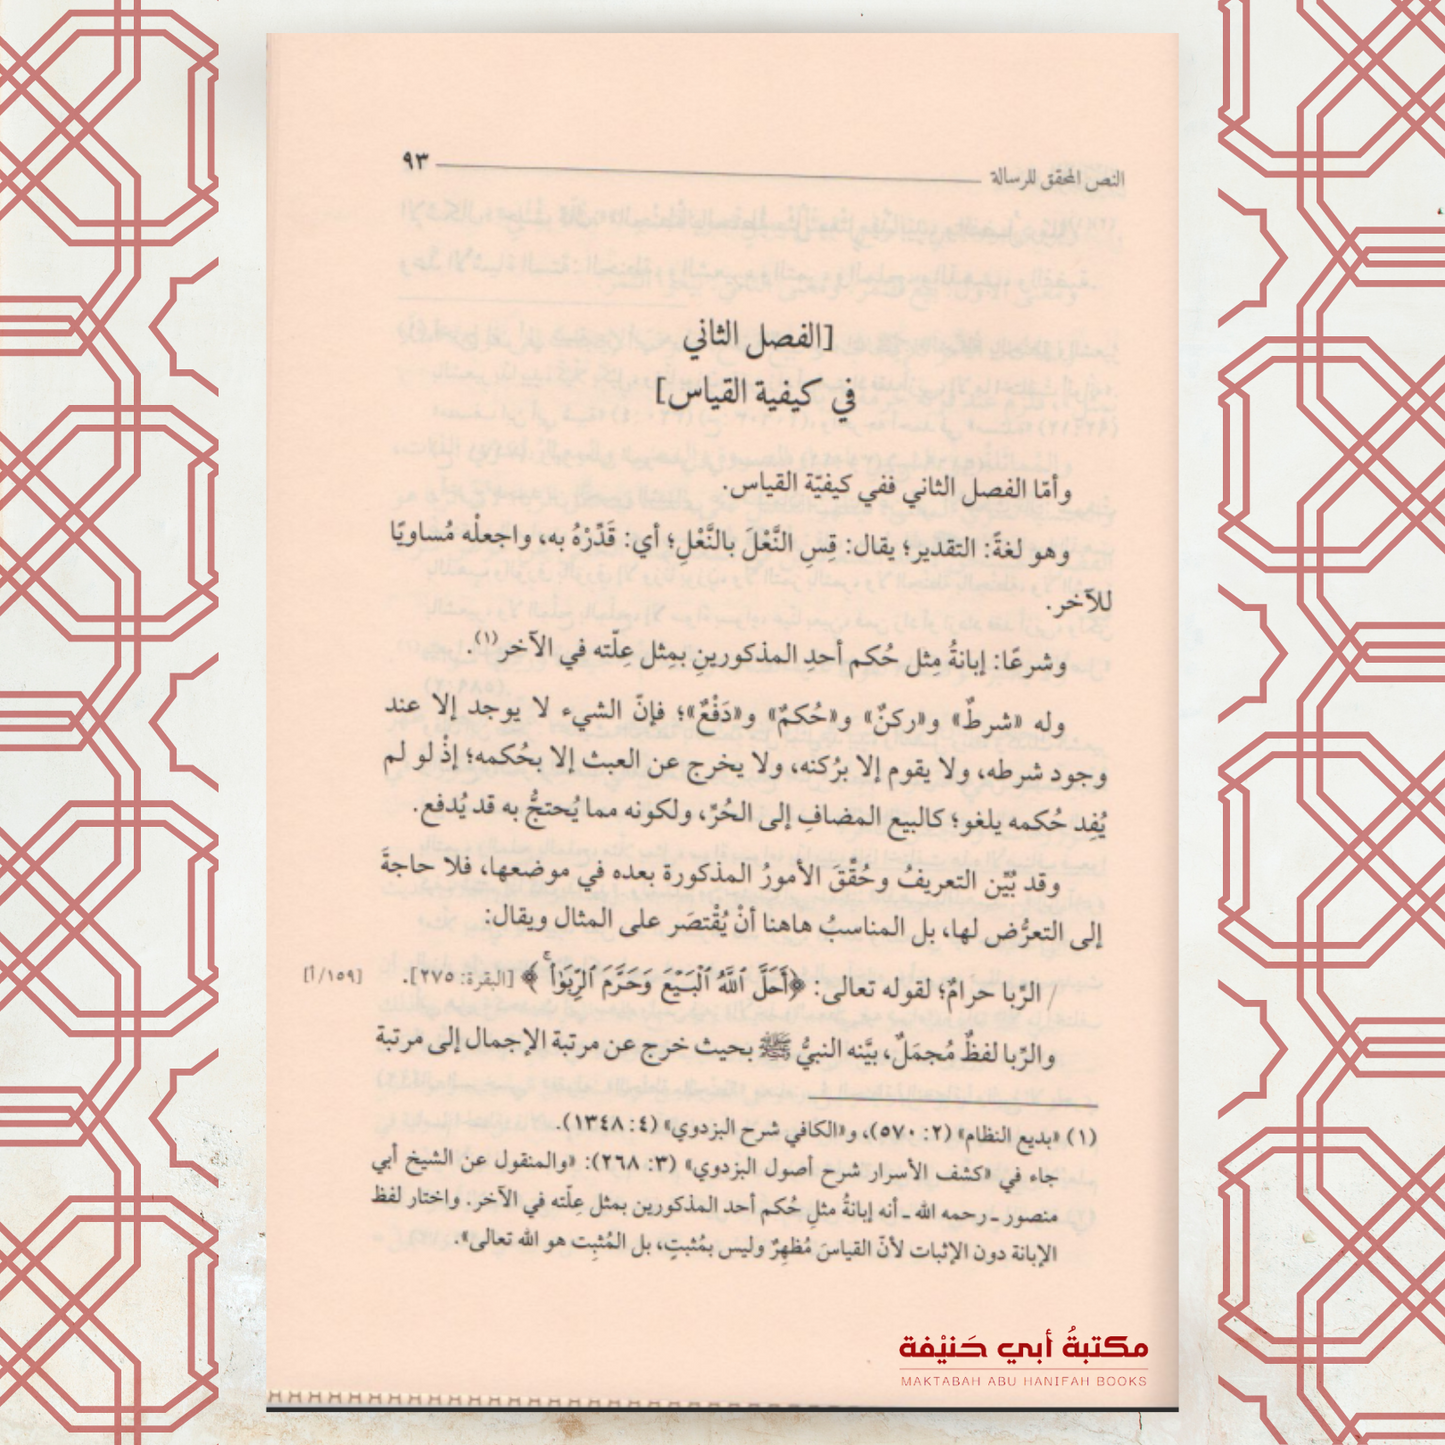 النص المحقق للرسالة ٩٣
[الفصل الثاني
في كيفية القياس]
وأمّا الفصل الثاني ففي كيفيّة القياس.
وهو لغةً: التقدير؛ يقال: قِسِ النَّعْلَ بالنَّعْلِ؛ أي: قَدِّرْهُ به، واجعلْه مُساويًا
للآخر.
وشرعًا: إبانةُ مِثل حُكم أحدِ المذكورينِ بمِثل عِلّته في الآخر(١).
وله «شرطٌ» و«ركنٌ» و«حُكمٌ» و«دَفْعٌ»؛ فإنّ الشيء لا يوجد إلا عند
وجود شرطه، ولا يقوم إلا برُكنه، ولا يخرج عن العبث إلا بحُكمه؛ إذْ لو لم
يُفِد حُكمه يلغو؛ كالبيع المضافِ إلى الحُرِّ، ولكونه مما يُحتجُّ به قد يُدفع.
وقد بُيِّن التعريفُ وحُقِّقَ الأمورُ المذكورة بعده في موضعها، فلا حاجةَ
إلى التعرُّض لها، بل المناسبُ هاهنا أنْ يُقْتصَر على المثال ويقال:
/ الرِّبا حرامٌ؛ لقوله تعالى: ﴿أَحَلَّ ٱللَّهُ ٱلْبَيْعَ وَحَرَّمَ ٱلرِّبَوٰا۟ ۚ﴾ [البقرة: ٢٧٥]. [١٥٩/أ]
والرِّبا لفظٌ مُجمَلٌ، بيَّنه النبيُّ ﷺ بحيث خرج عن مرتبة الإجمال إلى مرتبة
(١) «بديع النظام» (٢: ٥٧٠)، و«الكافي شرح البزدوي» (٤: ١٣٤٨).
جاء في «كشف الأسرار شرح أصول البزدوي» (٣: ٢٦٨): «والمنقول عن الشيخ أبي
منصور ـ رحمه الله ـ أنه إبانةُ مثلِ حُكم أحد المذكورين بمثل عِلّته في الآخر. واختار لفظ
الإبانة دون الإثبات لأنّ القياسَ مُظهِرٌ وليس بمُثبتٍ، بل المُثبِت هو الله تعالى».
مكتبةُ أبي حَنيْفة
MAKTABAH ABU HANIFAH BOOKS